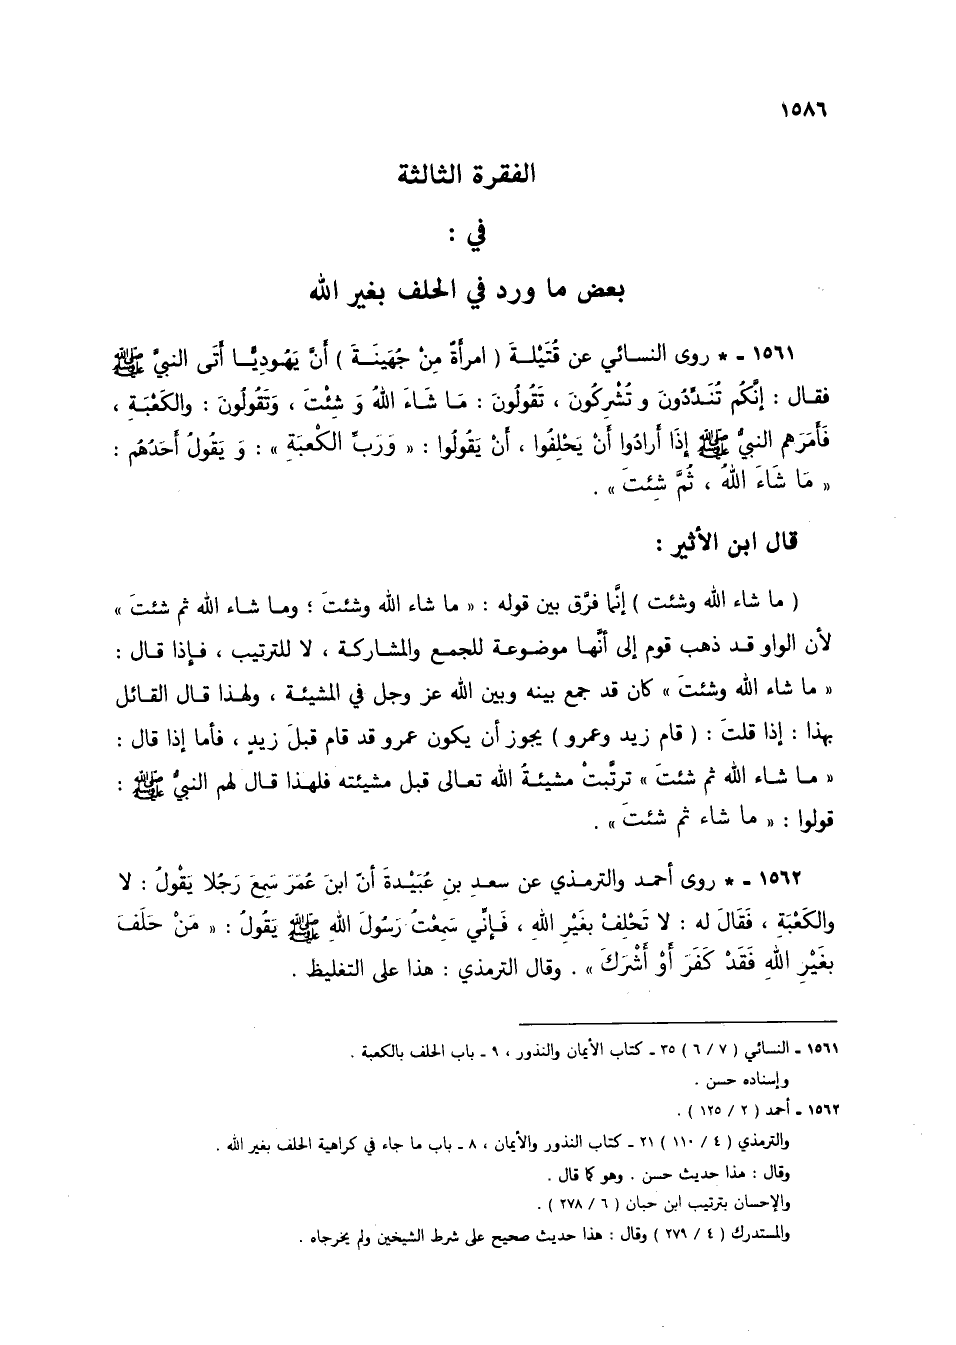 ١٥٨٦
الفقرة الثالثة
في :
بعض ما ورد في الحلف بغير الله
١٥٦١ - * روى النسائي عن قُتَيْلةَ ( امرأةٌ مِنْ جُهَينَةَ ) أَنَّ يَهُودِيًّا أَتَى النبيَّ ﷺ
فقال : إِنَّكُم تُنَدِّدُونَ و تُشْرِكُونَ ، تَقُولُونَ : مَا شَاءَ اللهُ وَ شِئْتَ ، وَتَقُولُونَ : والكَعْبَةِ ،
فَأَمَرَهم النبيُّ ﷺ إِذَا أَرادُوا أَنْ يَحْلِفُوا ، أَنْ يَقُولُوا : « وَرَبِّ الكَعبَةِ » : وَ يَقُولُ أَحَدُهُم :
« مَا شَاءَ اللهُ ، ثُمَّ شِئتَ » .
قال ابن الأثير :
( ما شاء الله وشئت ) إنَّما فرَّق بين قوله : « ما شاء الله وشئتَ ؛ وما شاء الله ثم شئتَ »
لأن الواو قد ذهب قوم إلى أنَّها موضوعة للجمع والمشاركة ، لا للترتيب ، فإذا قال :
« ما شاء الله وشئتَ » كان قد جمع بينه وبين الله عز وجل في المشيئة ، ولهذا قال القائل
بهذا : إذا قلتَ : ( قام زيد وعمرو ) يجوز أن يكون عمرو قد قام قبلَ زيدٍ ، فأما إذا قال :
« ما شاء الله ثم شئتَ » ترتَّبتْ مشيئةُ الله تعالى قبل مشيئته فلهذا قال لهم النبيُّ ﷺ :
قولوا : « ما شاء ثم شئتَ » .
١٥٦٢ - * روى أحمد والترمذي عن سعدِ بنِ عُبَيْدةَ أنّ ابنَ عُمَرَ سَمِعَ رَجُلا يَقْولُ : لا
والكَعْبَةِ ، فَقَالَ له : لا تَحْلِفْ بِغَيْرِ اللهِ ، فَإِنِّي سَمِعْتُ رَسُولَ اللهِ ﷺ يَقُولُ : « مَنْ حَلَفَ
بِغَيْرِ اللهِ فَقَدْ كَفَرَ أَوْ أَشْرَكَ » . وقال الترمذي : هذا على التغليظ .
١٥٦١ - النسائي ( ٧ / ٦ ) ٣٥ - كتاب الأيمان والنذور ، ٩ - باب الحلف بالكعبة .
وإسناده حسن .
١٥٦٢ - أحمد ( ٢ / ١٢٥ ) .
والترمذي ( ٤ / ١١٠ ) ٢١ - كتاب النذور والأيمان ، ٨ - باب ما جاء في كراهية الحلف بغير الله .
وقال : هذا حديث حسن . وهو كما قال .
والإحسان بترتيب ابن حبان ( ٦ / ٢٧٨ ) .
والمستدرك ( ٤ / ٢٧٩ ) وقال : هذا حديث صحيح على شرط الشيخين ولم يخرجاه .